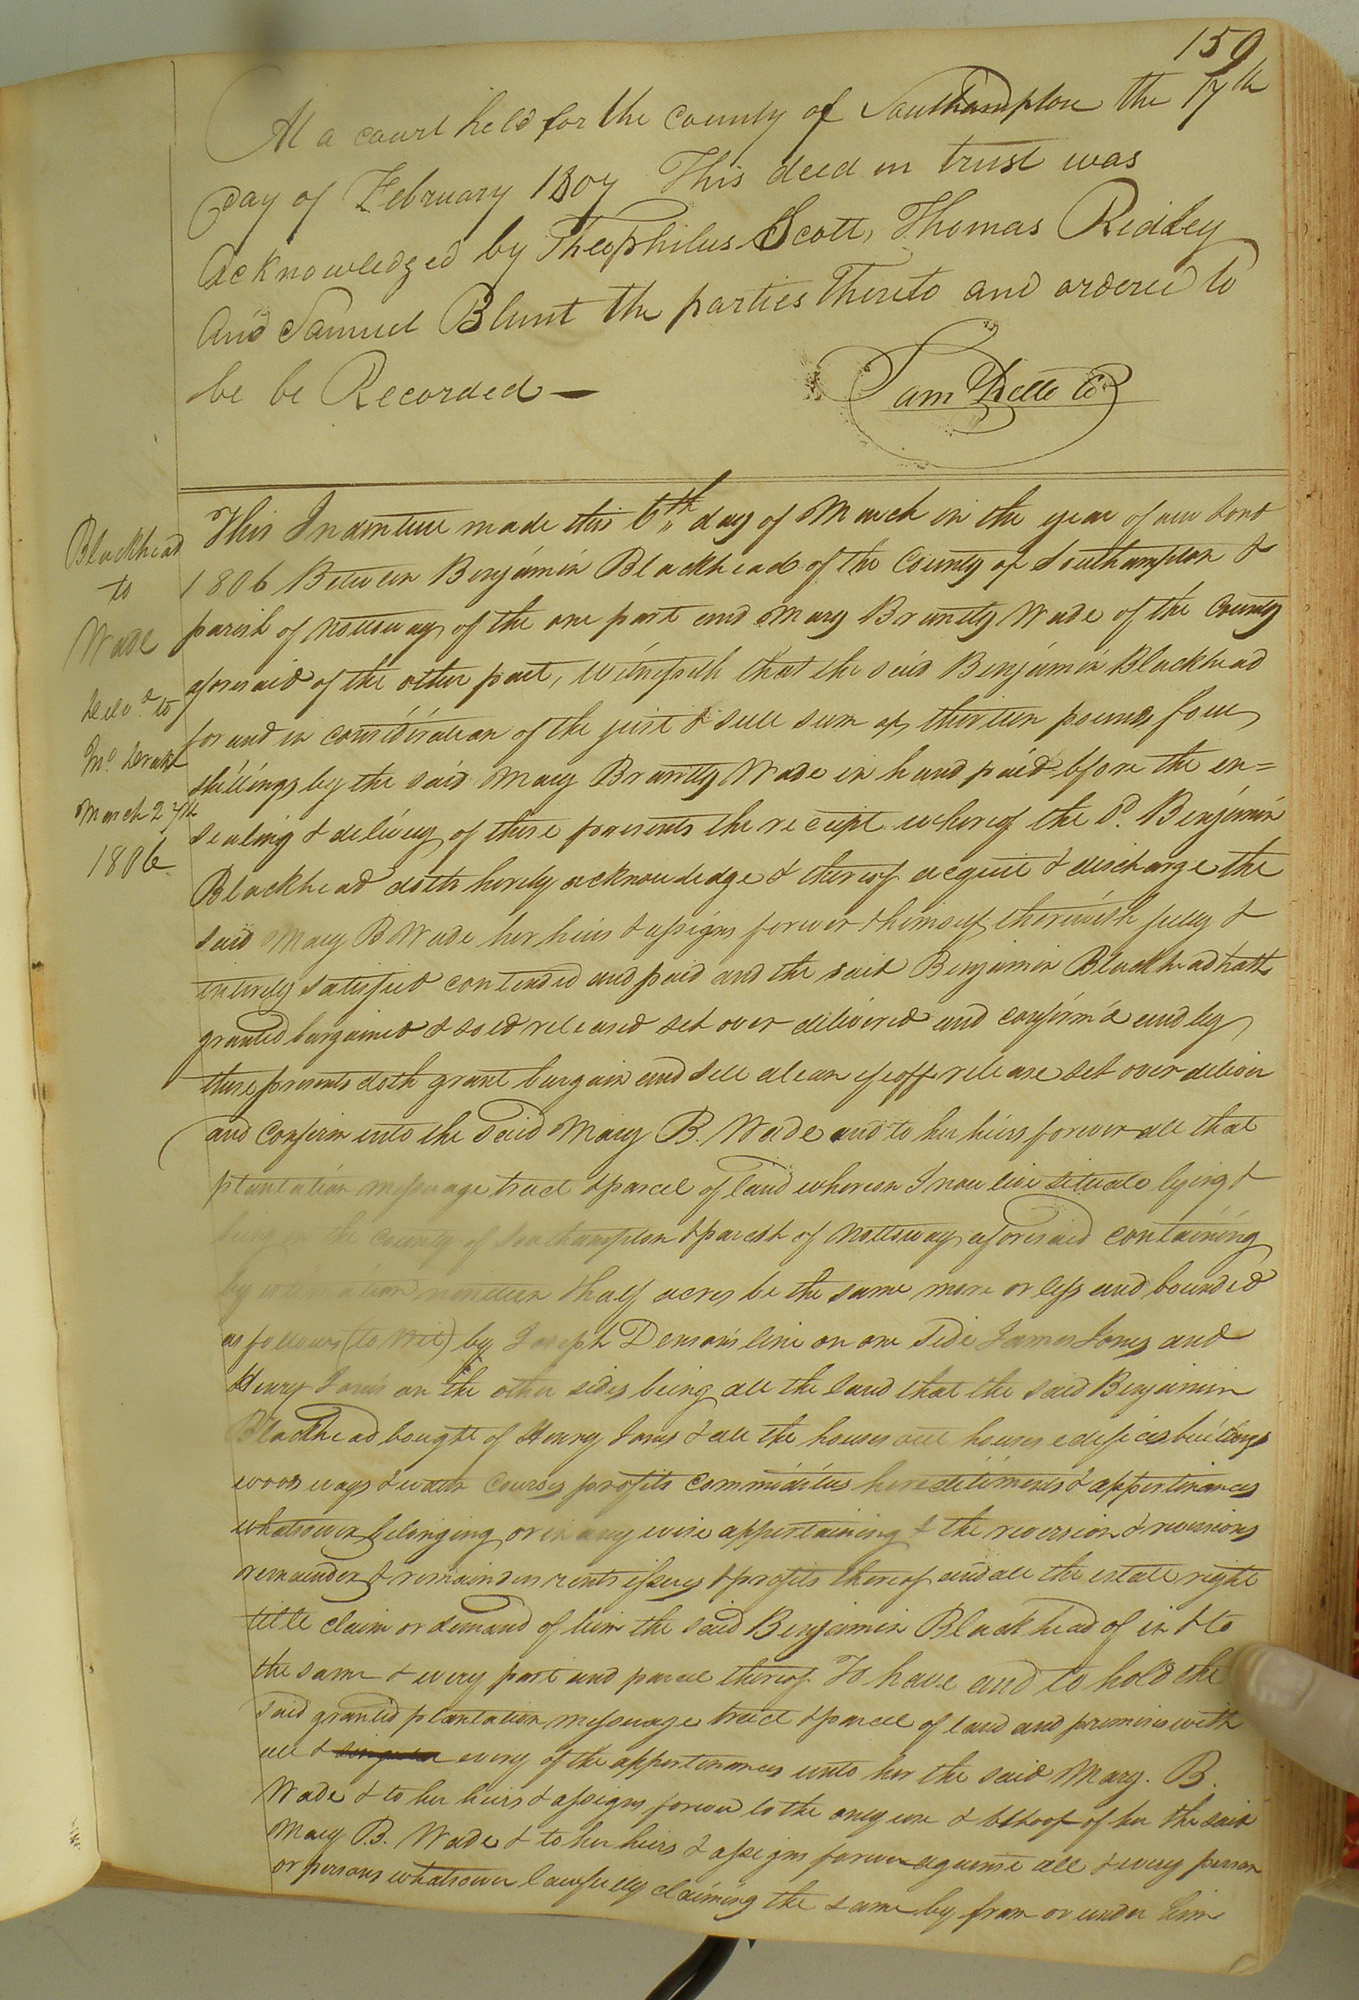 159
At a court held for the county of Southampton the 17th
Day of February 1807 This deed in trust was
Acknowledged by Theophilus Scott, Thomas Ridley
And Samuel Blunt the parties Thereto and ordered to
be be Recorded —
Sam Kello Cc
Blackhead
to
Wade
Deliv.d to
Mr. Drake
March 27th
1806
This Indenture made this 6th day of March in the year of our Lord
1806 Between Benjamin Blackhead of the County of Southampton &
parish of Nottoway of the one part and Mary Brantly Wade of the County
aforesaid of the other part, Witnesseth that the said Benjamin Blackhead
for and in consideration of the just & full sum of thirteen pounds four
shillings by the said Mary Brantly Wade in hand paid before the en=
sealing & delivery of these presents the receipt whereof the sd. Benjamin
Blackhead doth hereby acknowledge & thereof acquit & discharge the
said Mary B Wade her heirs & assigns forever & himself therewith fully &
entirely satisfied contented and paid and the said Benjamin Blackhead hath
granted bargained & sold released set over delivered and confirm'd and by
these presents doth grant bargain and sell alean efeoff release set over deliver
and confirm unto the said Mary B. Wade and to her heirs forever all that
plantation messuage tract & parcel of land whereon I now live situate lying &
being in the county of Southampton & parish of Nottoway aforesaid containing
by estimation nineteen & half acres be the same more or less and bounded
as follows (to wit) by Joseph Denson's line on one side James Jones and
Henry Jones on the other sides being all the land that the said Benjamin
Blackhead bought of Henry Jones & all the houses out houses edifices buildings
woods ways & water courses profits commodities hereditiments & appertinances
whatsoever belonging or in any wise appertaining & the reversion & reversions
remainder & remainders rents issues & profits thereof and all the estate right
title claim or demand of him the said Benjamin Blackhead of in & to
the same & every part and parcel thereof To have and to hold the
said granted plantation messuage tract & parcel of land and premises with
all & singular every of the appertinances unto her the said Mary. B.
Wade & to her heirs & assigns forever to the only use & behoof of her the said
Mary B. Wade & to her heirs & assigns forever against all & every person
or persons whatsoever lawfully claiming the same by from or under him